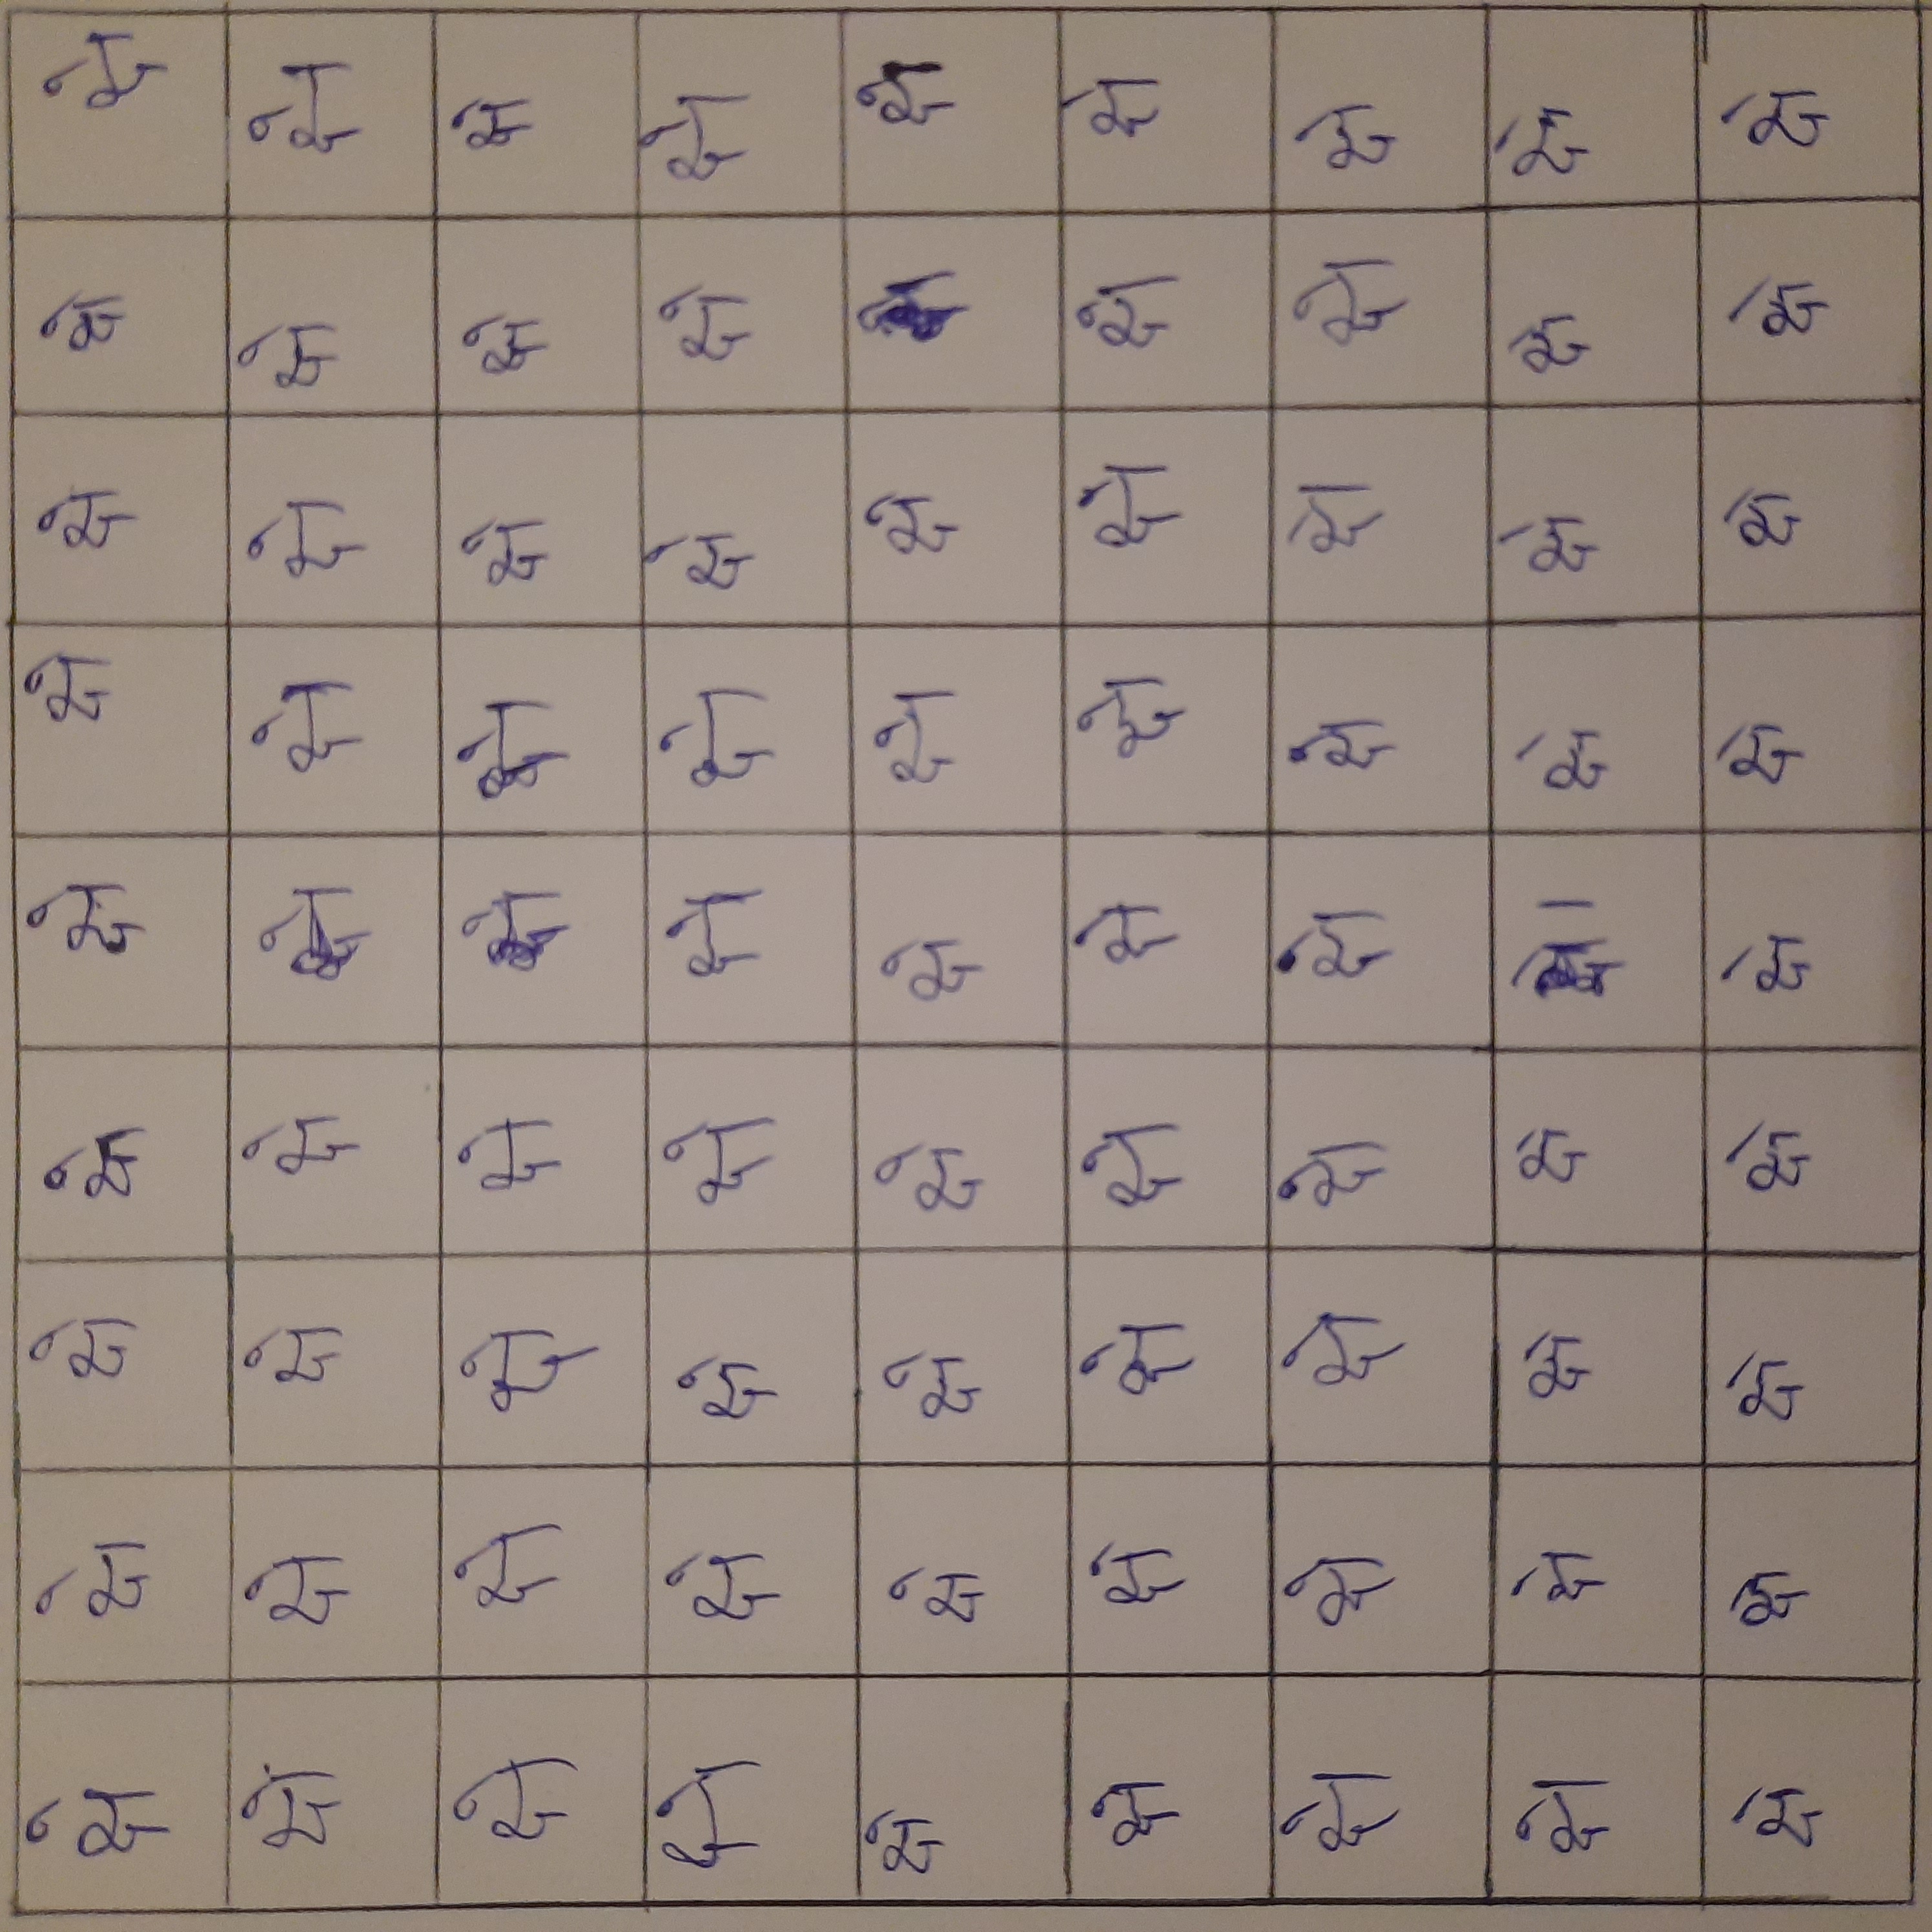 क्षे क्षे क्षे क्षे क्षे क्षे क्षे क्षे क्षे
क्षे क्षे क्षे क्षे क्षे क्षे क्षे क्षे क्षे
क्षे क्षे क्षे क्षे क्षे क्षे क्षे क्षे क्षे
क्षे क्षे क्षे क्षे क्षे क्षे क्षे क्षे क्षे
क्षे क्षे क्षे क्षे क्षे क्षे क्षे क्षे
क्षे क्षे क्षे क्षे क्षे क्षे क्षे क्षे क्षे
क्षे क्षे क्षे क्षे क्षे क्षे क्षे क्षे क्षे
क्षे क्षे क्षे क्षे क्षे क्षे क्षे क्षे
क्षे क्षे क्षे क्षे क्षे क्षे क्षे क्षे क्षे